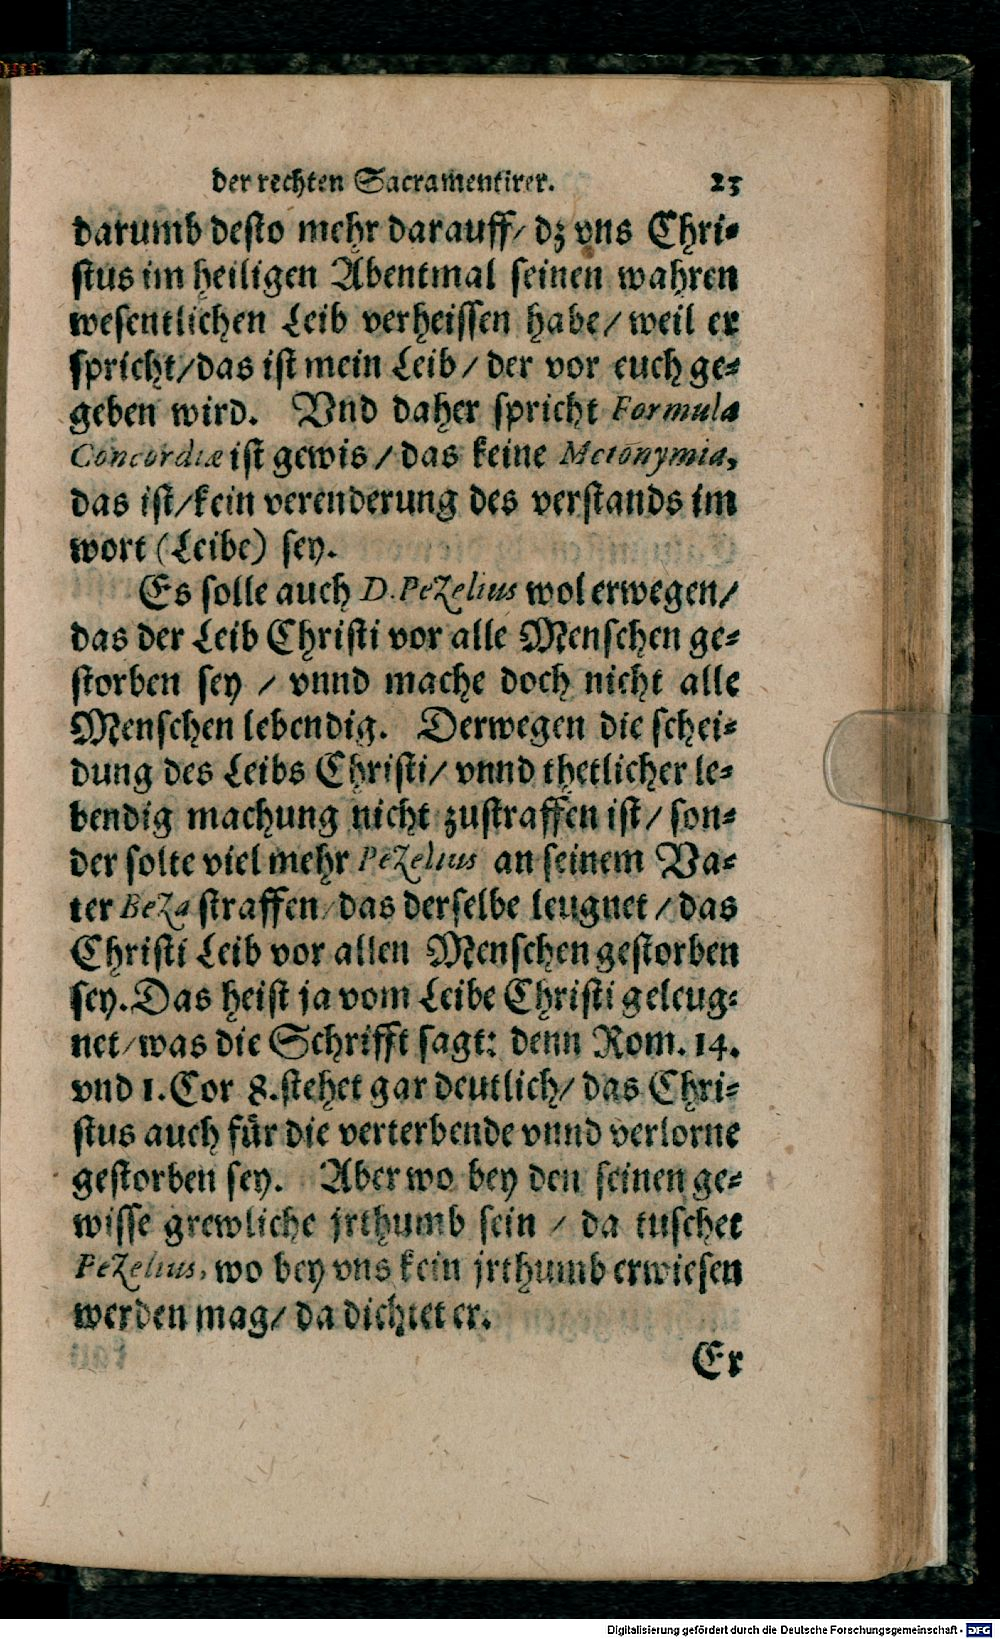 der rechten Sacramentirer. 23
darumb desto mehr darauff/ dz vns Chri-
stus im heiligen Abentmal seinen wahren
wesentlichen Leib verheissen habe/ weil er
spricht/ das ist mein Leib/ der vor euch ge-
geben wird. Vnd daher spricht Formula
Concordiæ ist gewis/ das keine Metonymia,
das ist/ kein verenderung des verstands im
wort (Leibe) sey.
Es solle auch D. Pezelius wol erwegen/
das der Leib Christi vor alle Menschen ge-
storben sey / vnnd mache doch nicht alle
Menschen lebendig. Derwegen die schei-
dung des Leibs Christi/ vnnd thetlicher le-
bendig machung nicht zustraffen ist/ son-
der solte viel mehr Pezelius an seinem Va-
ter Beza straffen/ das derselbe leugnet/ das
Christi Leib vor allen Menschen gestorben
sey. Das heist ja vom Leibe Christi geleug-
net/ was die Schrifft sagt: denn Rom. 14.
vnd 1. Cor 8. stehet gar deutlich/ das Chri-
stus auch für die verterbende vnnd verlorne
gestorben sey. Aber wo bey den seinen ge-
wisse grewliche jrthumb sein / da tuschet
Pezelius, wo bey vns kein jrthumb erwiesen
werden mag/ da dichtet er.
Er
Digitalisierung gefördert durch die Deutsche Forschungsgemeinschaft - DFG